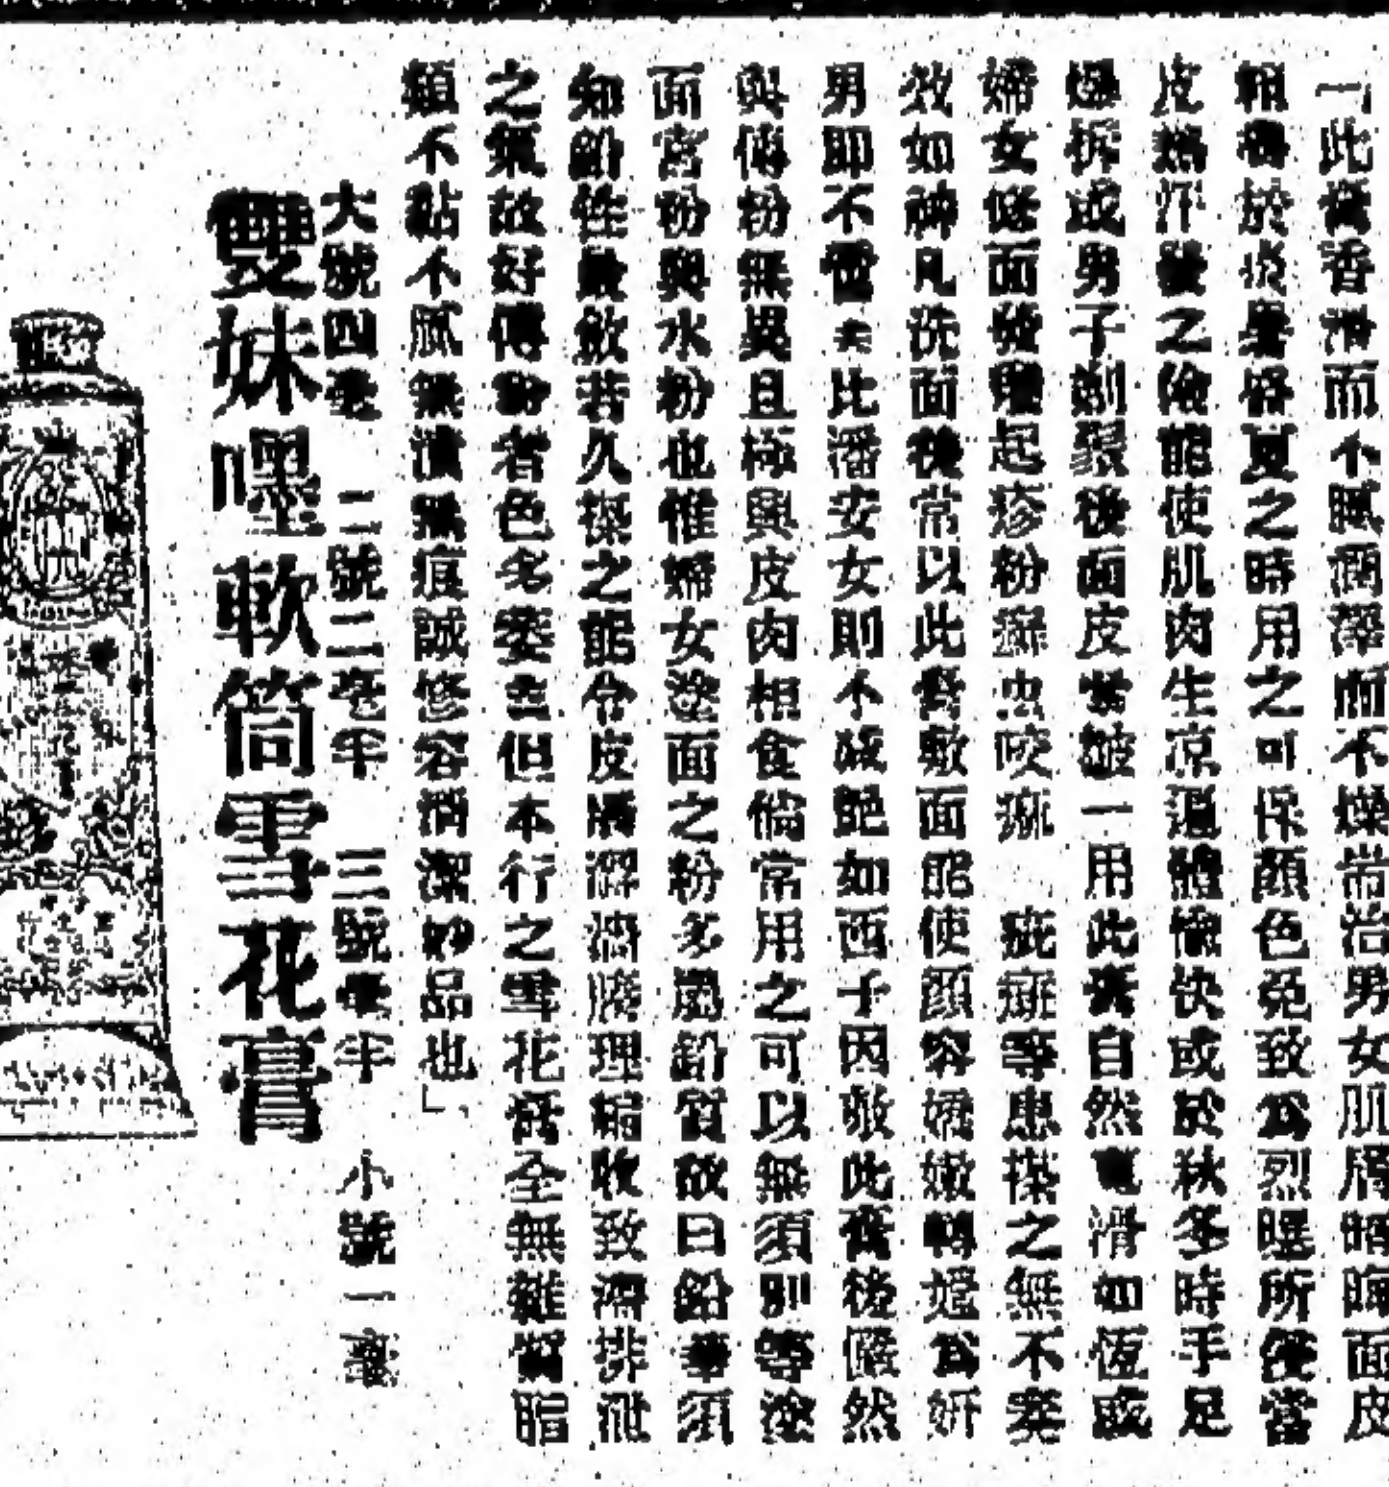 一此膏香滑而不膩潤澤而不燥常治男女肌膚晤晦面皮
粗糙於炎暑盛夏之時用之可保顏色免致為烈曝所侵當
皮熱汗發之際能使肌肉生涼遍體愉快或於秋冬時手足
爆拆或男子剃鬚後面皮緊皺一用此膏自然光滑如恆或
婦女修面後起疹粉癬虫咬瘢 疵斑等患搽之無不奏
效如神凡洗面後常以此膏敷面能使顏容嬌嫩轉媸為妍
男即不 比潘安女則不減艷如西子因敷此膏後儼然
與傅粉無異且極與皮肉相食倘常用之可以無須別等塗
面膏粉與水粉也惟婦女塗面之粉多屬鉛質故曰鉛華須
知鉛性歛若久搽之能令皮膚澀滯腠理縮收致濁排泄
之氣故好傅粉者色多萎 但本行之雪花膏全無雜質脂
類不黏不膩無漬無痕誠修容消潔妙品也」
大號四毫 二號二毫半 三號毫半 小號一毫
雙妹嚜軟筒雪花膏